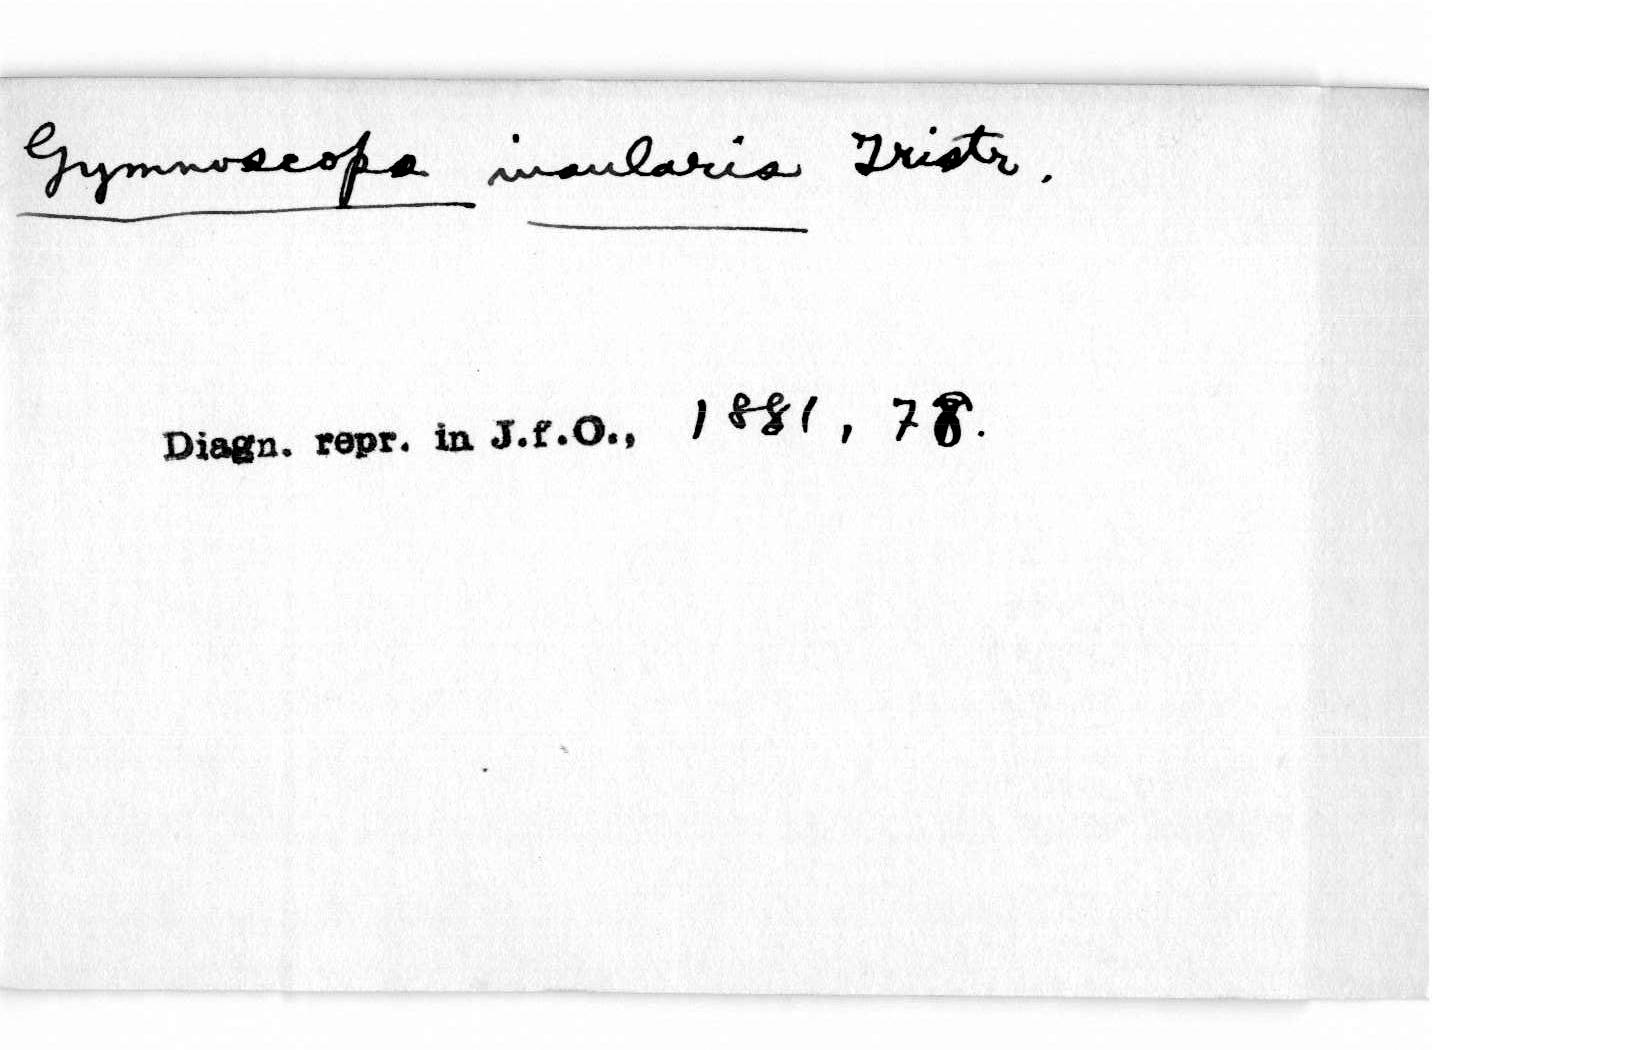 Gymnoscops insularis Tristr.
Diagn. repr. in J.f.O., 1881, 78.